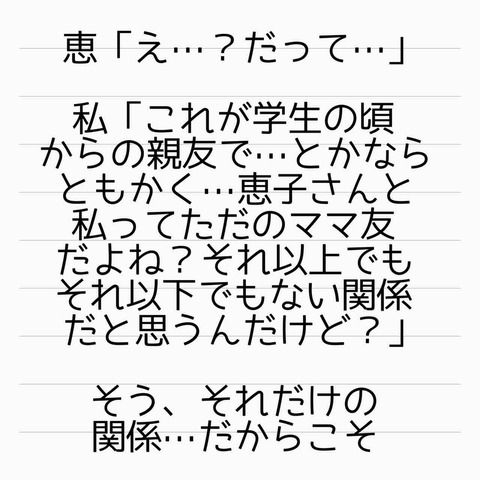 恵「え…？だって…」
私「これが学生の頃
からの親友で…とかなら
ともかく…恵子さんと
私ってただのママ友
だよね？それ以上でも
それ以下でもない関係
だと思うんだけど？」
そう、それだけの
関係…だからこそ